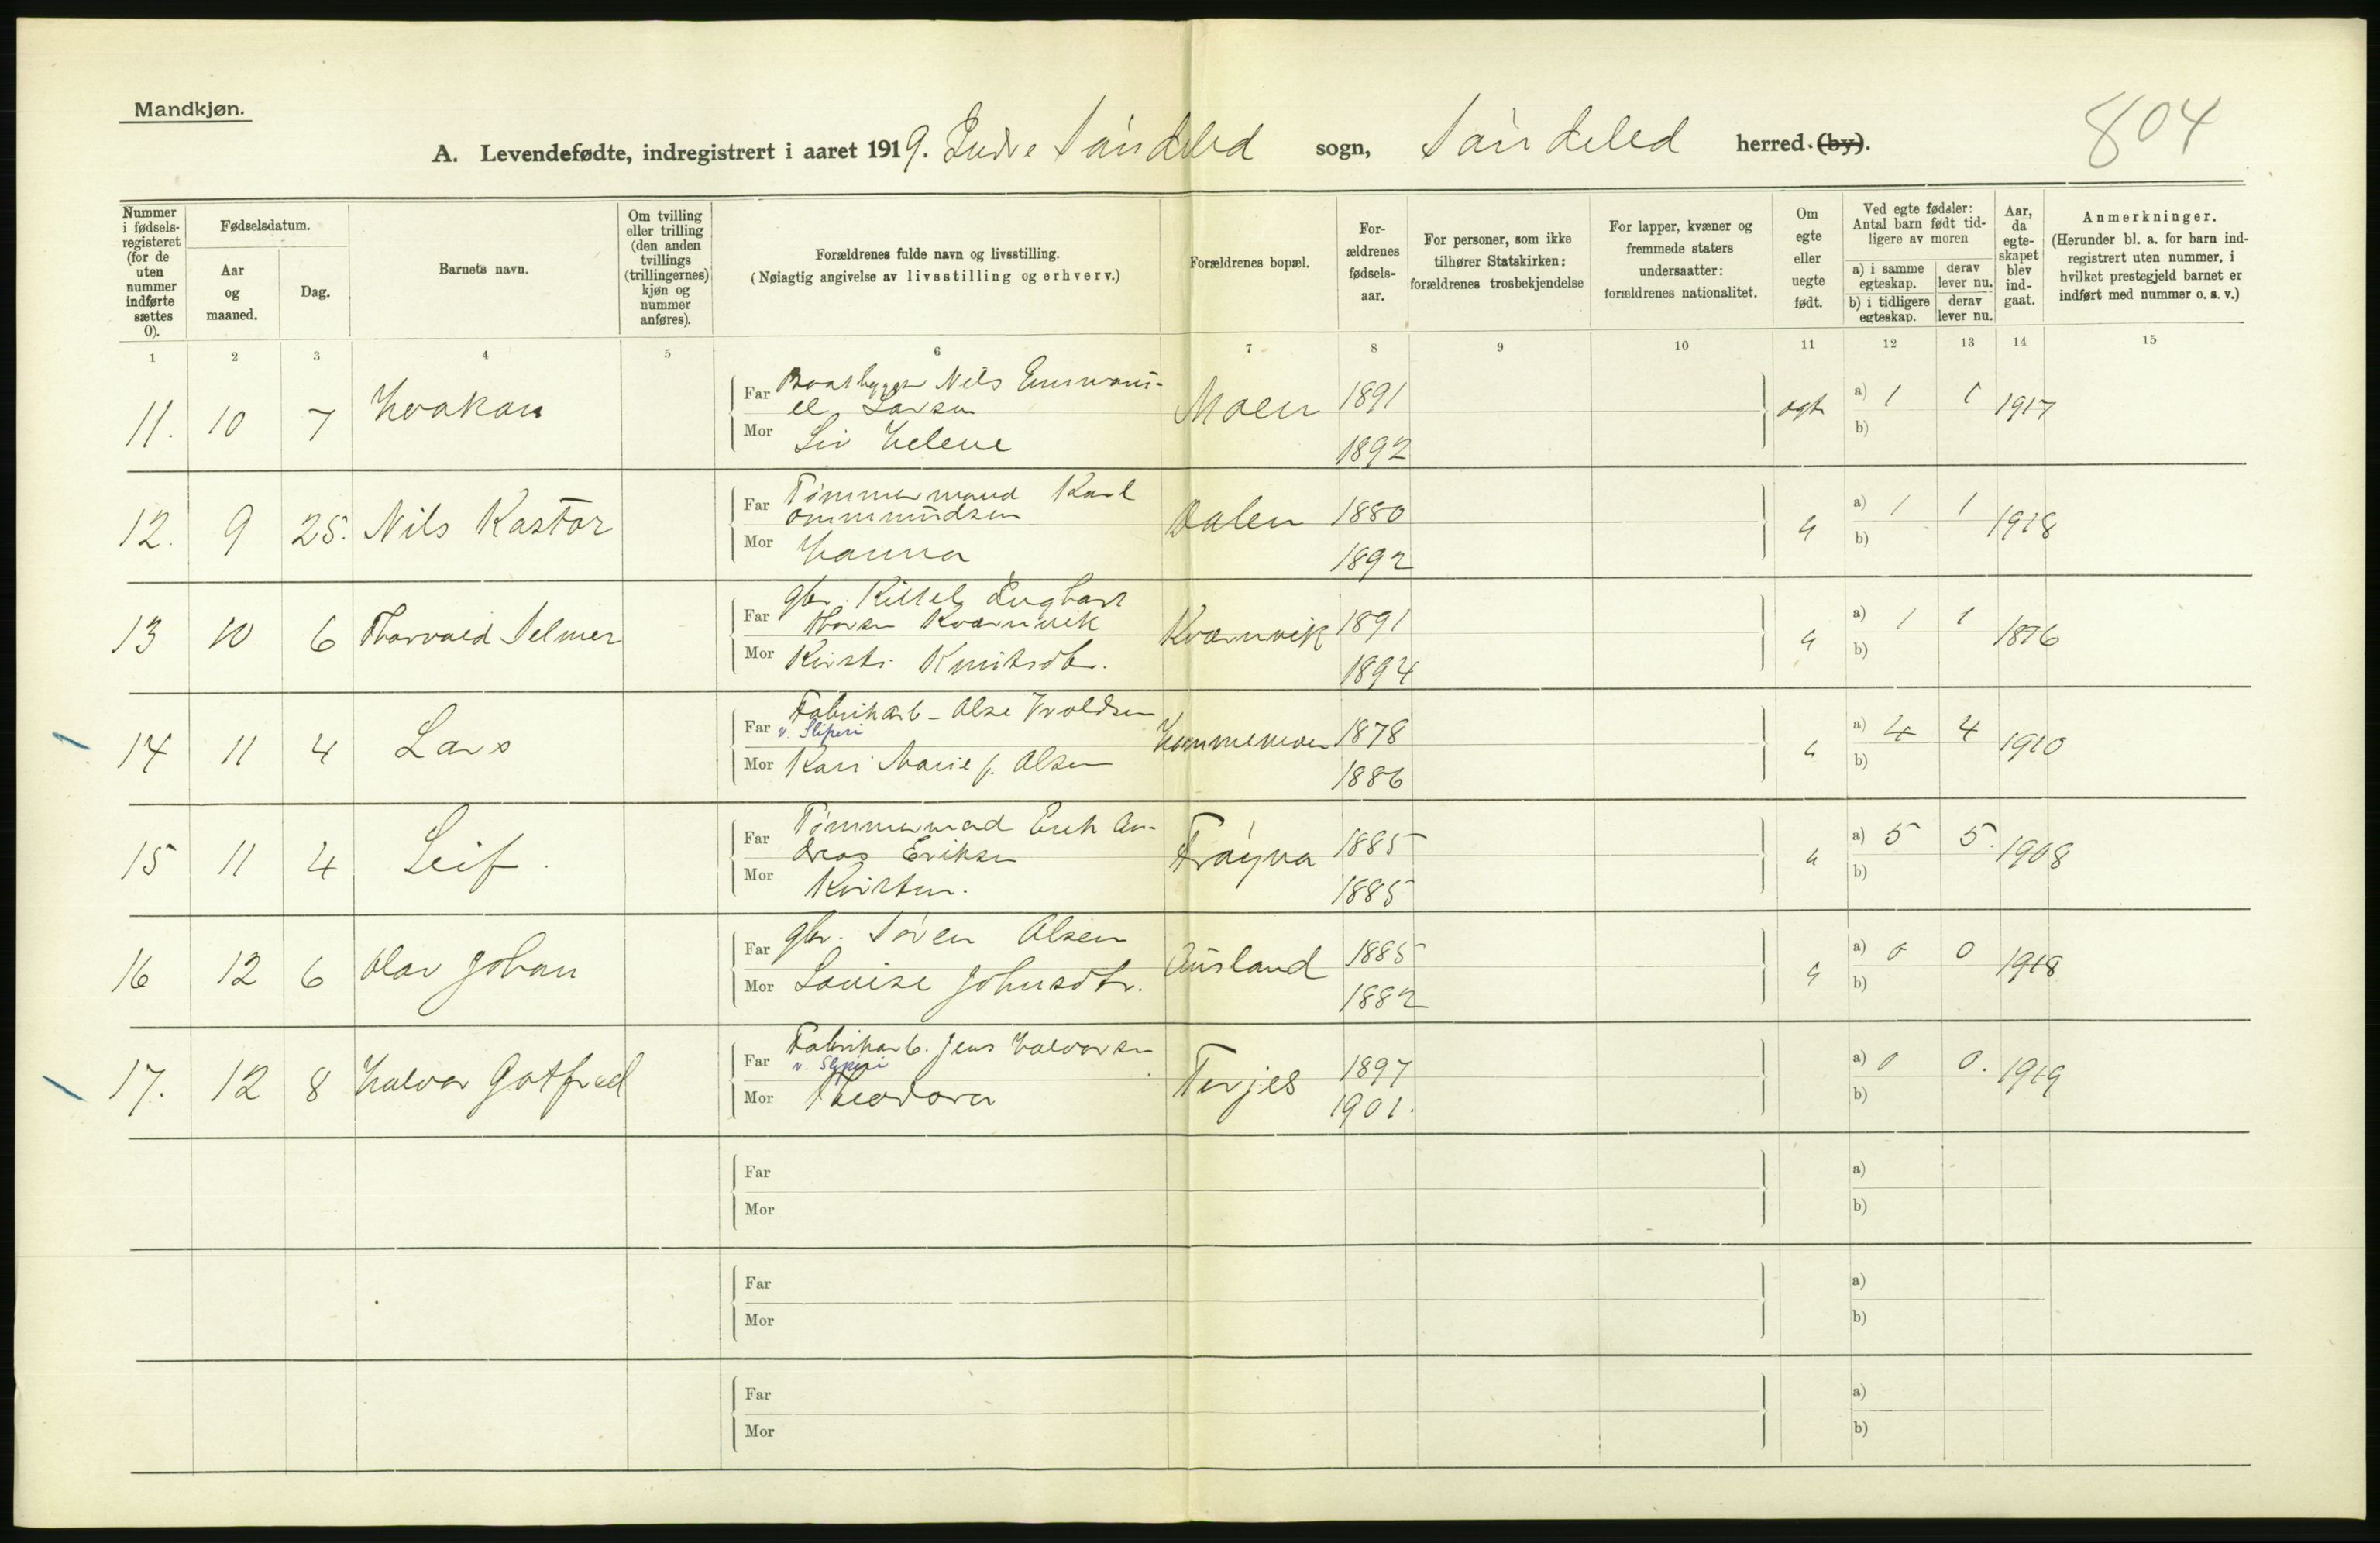 Mandkjøn.
804
A. Levendefødte, indregistrert i aaret 1919. Indre Søndeled sogn, Søndeled herred. (by).
Nummer i fødsels-registeret (for de uten nummer indførte sættes 0).
Fødselsdatum.
Aar og maaned.
Dag.
Barnets navn.
Om tvilling eller trilling (den anden tvillings (trillingernes) kjøn og nummer anføres).
Forældrenes fulde navn og livsstilling.
(Nøiagtig angivelse av livsstilling og erhverv.)
Forældrenes bopæl.
For-ældrenes fødsels-aar.
For personer, som ikke tilhører Statskirken: forældrenes trosbekjendelse
For lapper, kvæner og fremmede staters undersaatter: forældrenes nationalitet.
Om egte eller uegte født.
Ved egte fødsler: Antal barn født tid-ligere av moren
a) i samme egteskap.
derav lever nu.
b) i tidligere egteskap.
derav lever nu.
Aar, da egte-skapet blev ind-gaat.
Anmerkninger.
(Herunder bl. a. for barn ind-registrert uten nummer, i hvilket prestegjeld barnet er indført med nummer o. s. v.)
1 2 3 4 5 6 7 8 9 10 11 12 13 14 15
11. 10 7 Haakon
Far Baatbygger Nils Emmanu-
el Larsen
Mor Liv Helene
Moen 1891
1892
egte a) 1 1 1917
b)
12. 9 25. Nils Kastor
Far Tømmermand Karl
Ommundsen
Mor Hanna
Dalen 1880
1892
" a) 1 1 1918
b)
13 10 6 Thorvald Selmer
Far gbr. Kittel Engbart
Thorsen Kværnvik
Mor Kirsti Knutsdtr.
Kværnvik 1891
1894
" a) 1 1 1816
b)
14 11 4 Lars
Far Fabrikarb. Olse Vroldsen
v. Sliperi
Mor Kari Marie f. Olsen
1878
1886
" a) 4 4 1910
b)
15 11 4 Leif.
Far Tømmermand Erik An-
dreas Eriksen
Mor Kirsten.
Frøyna 1885
1885
" a) 5 5. 1908
b)
16 12 6 Olav Johan
Far gbr. Søren Olsen
Mor Lovise Johnsdtr.
Ausland 1885
1882
" a) 0 0 1918
b)
17. 12 8 Halvor Gotfred
Far Fabrikarb. Jens Halvorsen
v. Sliperi
Mor Theodora
Terjes 1897
1901.
a) 0 0. 1919
b)
Far
Mor
a)
b)
Far
Mor
a)
b)
Far
Mor
a)
b)